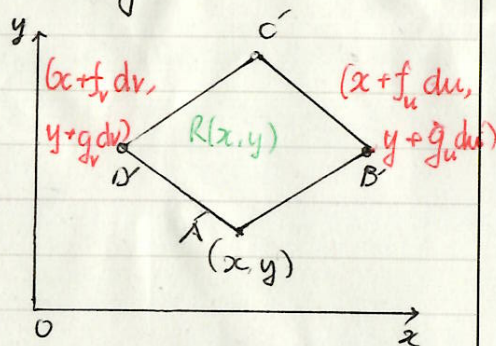 y
C'
(x+f_v dv,
y+g_v dv)
R(x,y)
(x+f_u du,
y+g_u du)
D'
B'
A'
(x,y)
O
x